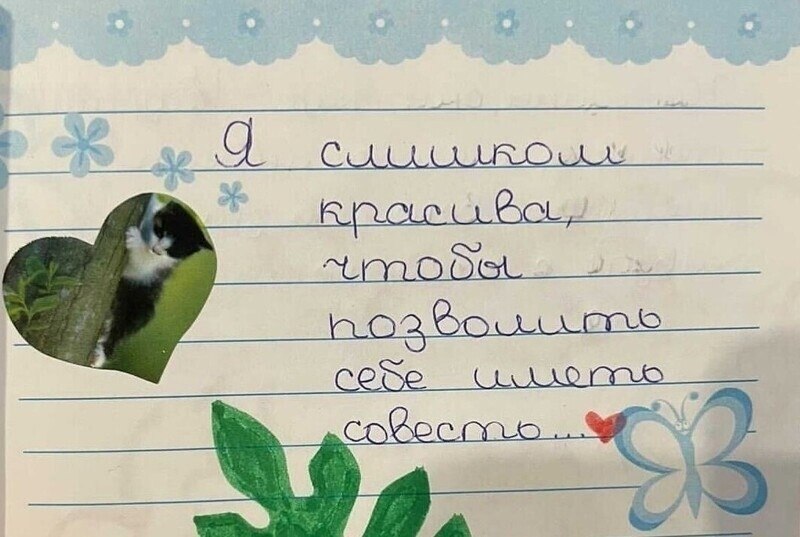 Я слишком
красива,
чтобы
позволить
себе иметь
совесть...